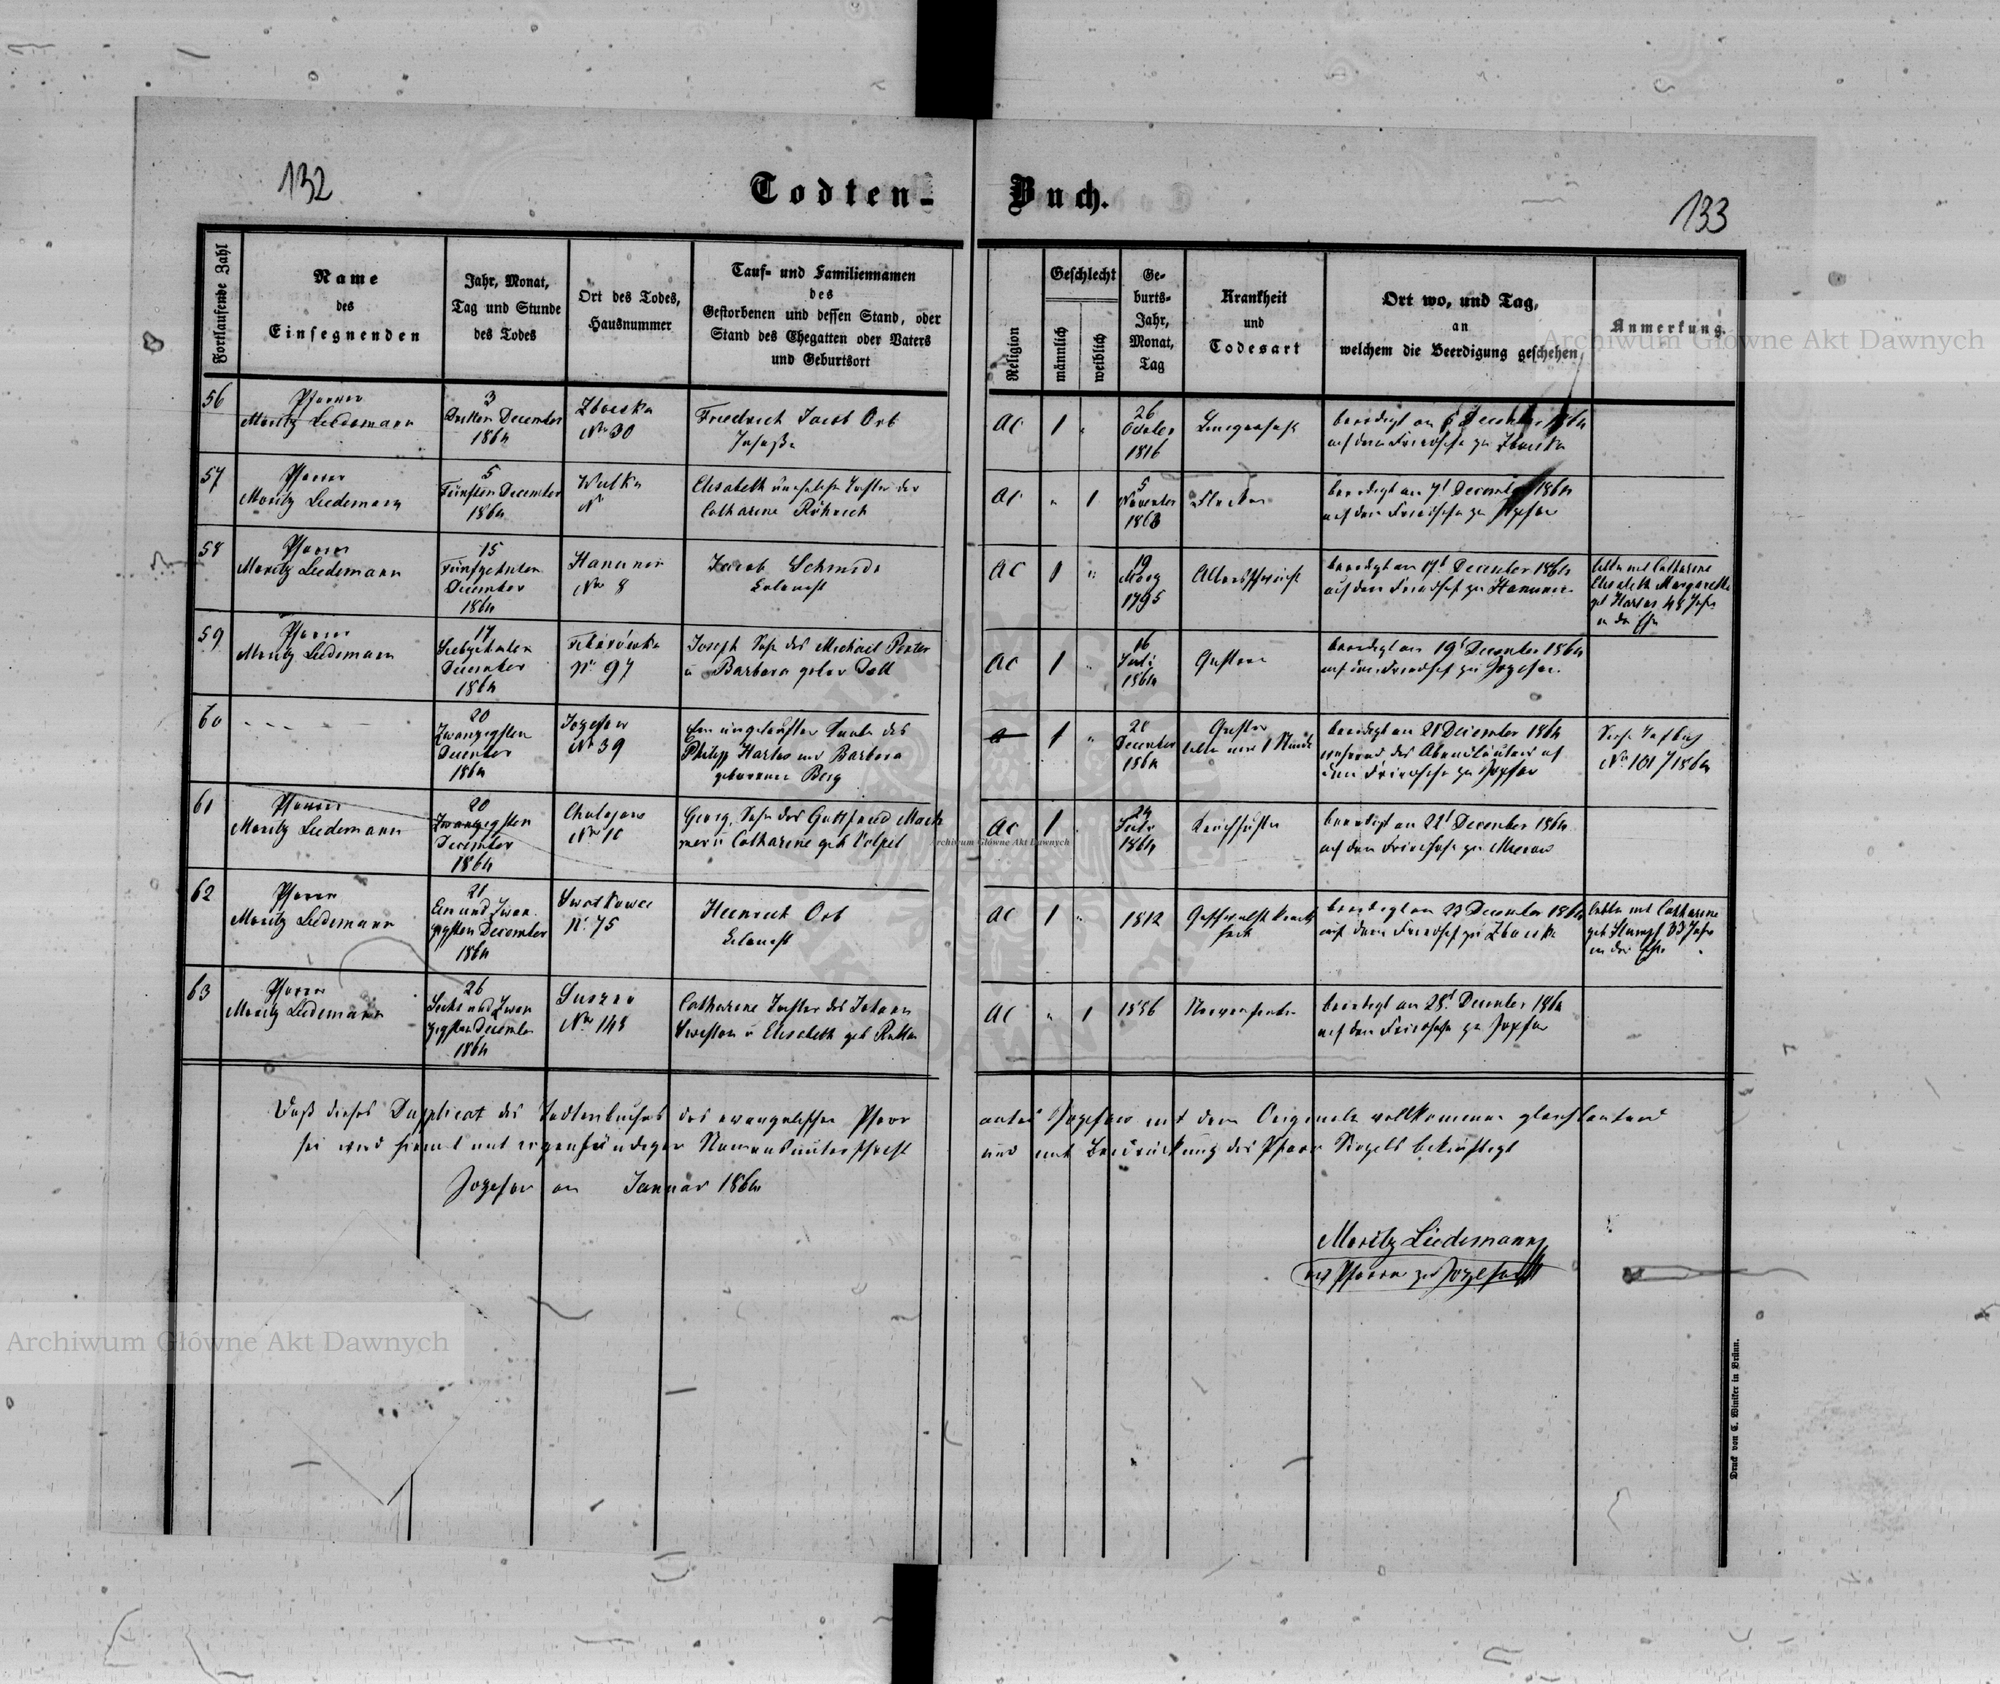 132
Todten-
Buch.
133
Fortlaufende Zahl
Name
des
Einsegnenden
Jahr, Monat,
Tag und Stunde
des Todes
Ort des Todes,
Hausnummer
Tauf- und Familiennamen
des
Gestorbenen und dessen Stand, oder
Stand des Ehegatten oder Vaters
und Geburtsort
Religion
Geschlecht
männlich
weiblich
Ge-
burts-
Jahr,
Monat,
Tag
Krankheit
und
Todesart
Ort wo, und Tag,
an
welchem die Beerdigung geschehen,
Anmerkung.
Archiwum Główne Akt Dawnych
56
Pfarrer
Moritz Liedemann
3
Dritten December
1864
Zboiska
Nr 30
Friedrich Jacob Orb
AC
1
26
October
1816
beerdigt am 6 December 1864
auf dem Friedhofe zu Zboiska
57
Pfarrer
Moritz Liedemann
5
Fünften December
1864
Wulka
N
Elisabeth uneheliche Tochter der
Catharine Röhrich
AC
1
5
November
1863
beerdigt am 7t December 1864
auf dem Friedhofe zu Jozefow
58
Pfarrer
Moritz Liedemann
15
Fünfzehnten
December
1864
Hanunin
Nr 8
Jacob Schmidt
AC
1
19
März
1795
Altersschwäche
beerdigt am 17t December 1864
auf dem Friedhof zu Hanunin
lebte mit Catharine
Elisabeth Margaretha
geb Harlos 48 Jahre
in der Ehe
59
Pfarrer
Moritz Liedemann
17
Siebzehnten
December
1864
Nr 97
Joseph Sohn des Michael
u Barbara
AC
1
16
Juli
1864
beerdigt am 19t December 1864
auf dem Friedhof zu Jozefow
60
20
Zwanzigsten
December
1864
Jozefow
Nr 39
Ein ungetaufter Knabe des
Philipp Harlos und Barbara
geborenen Berg
1
20
December
1864
lebte nur 1 Stunde
beerdigt am 21 December 1864
während des Abendläutens auf
dem Friedhofe zu Jozefow
Nr 101 / 1864
61
Pfarrer
Moritz Liedemann
20
Zwanzigsten
December
1864
Nr 10
Georg, Sohn des Gottfried
u Catharine geb Völpel
AC
1
24
Juli
1864
Keuchhusten
beerdigt am 22t December 1864
auf dem Friedhofe zu Mierow
62
Pfarrer
Moritz Liedemann
21
Ein und Zwan-
zigsten December
1864
Nr 75
Heinrich Orb
AC
1
1812
beerdigt am 23 December 1864
auf dem Friedhof zu Zboiska
lebte mit Catharine
geb Stumpf 33 Jahre
in der Ehe
63
Pfarrer
Moritz Liedemann
26
Sechs und Zwan-
zigsten December
1864
Suszno
Nr 148
Catharine Tochter des Johann
u Elisabeth geb
AC
1
1856
Nervenfieber
beerdigt am 28t December 1864
auf dem Friedhofe zu Jozefow
Archiwum Główne Akt Dawnych
Daß dieses Duplicat des Todtenbuches des evangelischen Pfarr
amtes Jozefow mit dem Originale vollkommen gleichlautend
sei wird hiemit mit eigenhändiger Namensunterschrift
und mit Beidrückung des Pfarr Siegels bekräftigt
Jozefow am Januar 1864
Moritz Liedemann
ev Pfarrer zu Jozefow
Archiwum Główne Akt Dawnych
Druck von C. Winiker in Brünn.